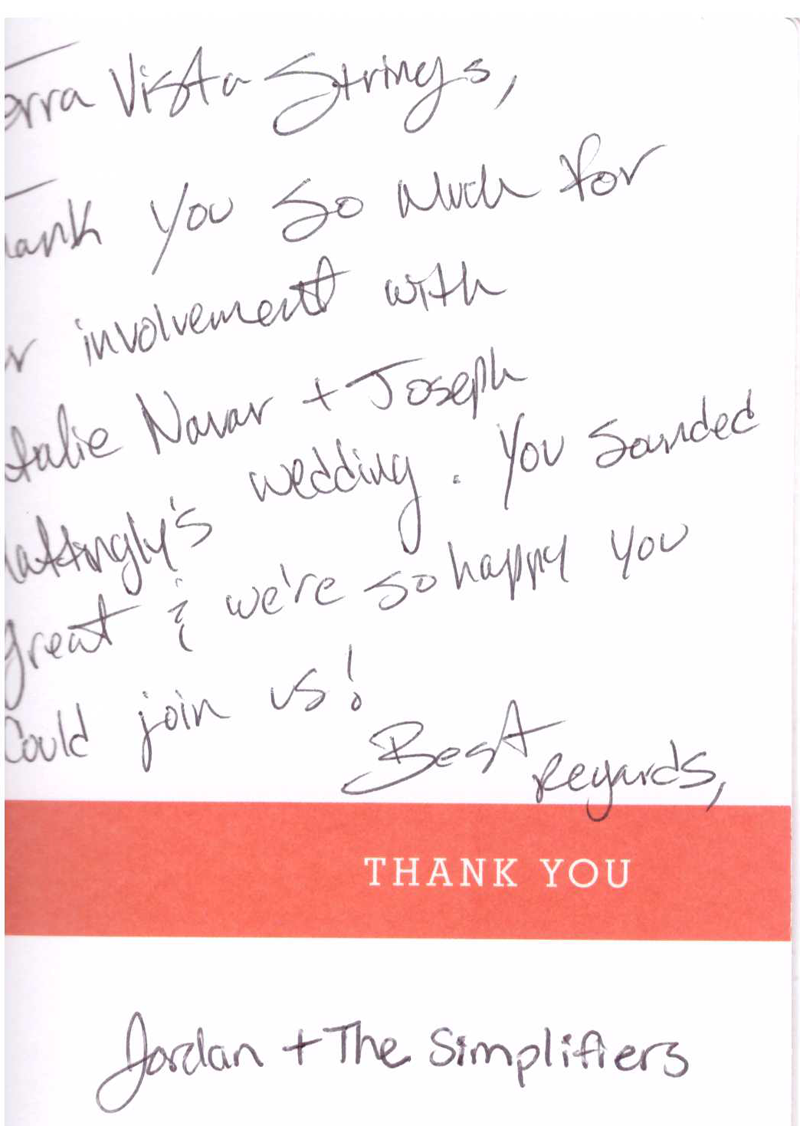 erra Vista Strings,
ank You So Much for
r involvement with
talie Navar + Joseph
attingly's wedding. You sounded
great & we're so happy you
Could join us!
Best
Regards,
THANK YOU
Jordan + The Simplifiers